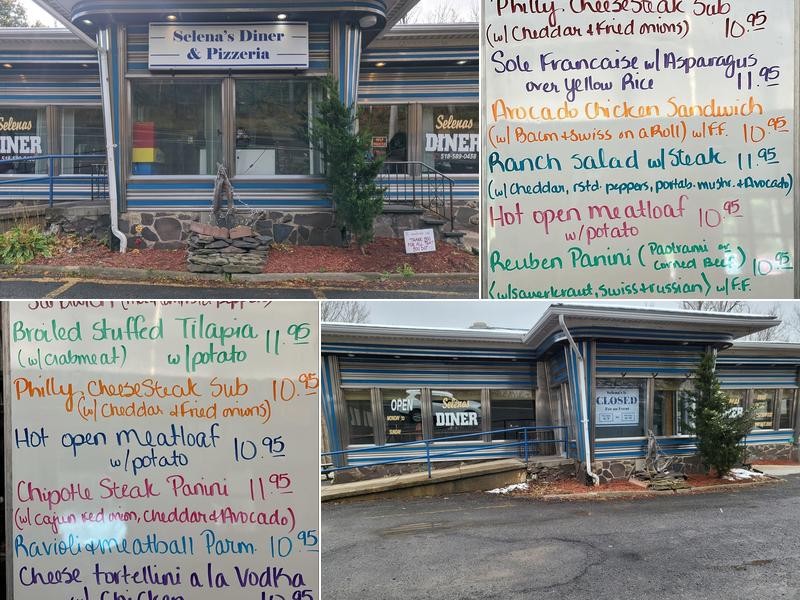 Selena's Diner
& Pizzeria
Selenas
DINER
518-589-0458
Selenas
DINER
518-589-0458
THANK YOU
FOR ALL THAT
YOU DO!
Philly Cheesesteak Sub
(w/ Cheddar & Fried onions) 10.95
Sole Francaise w/ Asparagus
over Yellow Rice 11.95
Avocado Chicken Sandwich
(w/ Bacon & Swiss on a Roll) w/ F.F. 10.95
Ranch Salad w/ Steak 11.95
(w/ Cheddar, rstd. peppers, portab. mushr. & Avocado)
Hot open meatloaf 10.95
w/potato
Reuben Panini (Pastrami or
Corned Beef) 10.95
(w/ sauerkraut, Swiss & russian) w/ F.F.
Broiled Stuffed Tilapia 11.95
(w/ crabmeat) w/potato
Philly CheeseSteak Sub 10.95
(w/ Cheddar & Fried onions)
Hot open meatloaf 10.95
w/potato
Chipotle Steak Panini 11.95
(w/ cajun red onion, cheddar & Avocado)
Ravioli & meatball Parm. 10.95
Cheese tortellini a la Vodka
w/ Chicken 10.95
OPEN
MONDAY
SUNDAY
Selenas
DINER
Selena's Is
CLOSED
For an Event